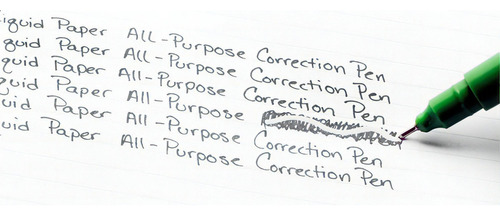 iquid Paper All-Purpose Correction Pen
quid Paper All-Purpose Correction Pen
quid Paper All-Purpose Correction Pen
quid Paper All-Purpose
uid Paper All-Purpose Correction Pen
uid Paper All-Purpose Correction Pen